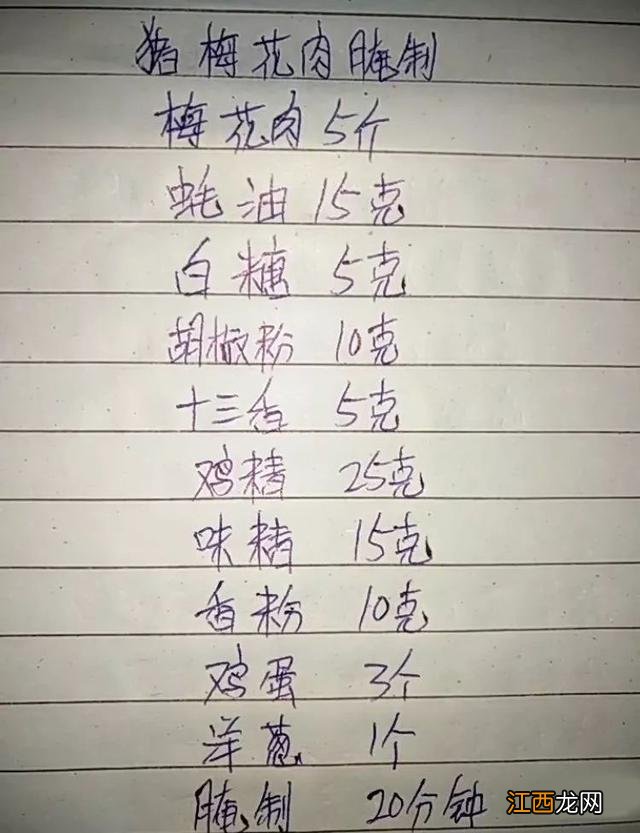 猪梅花肉腌制
梅花肉 5个
蚝油 15克
白糖 5克
胡椒粉 10克
十三香 5克
鸡精 25克
味精 15克
香粉 10克
鸡蛋 3个
洋葱 1个
腌制 20分钟
江西龙网